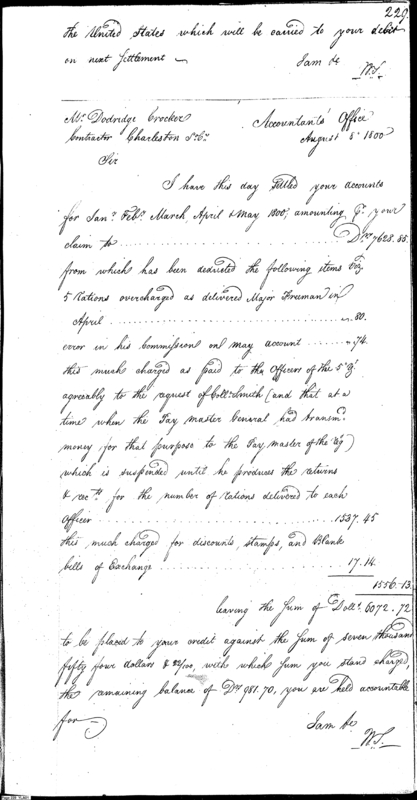 229.
the United States which will be carried to your debit
on next Settlement
I am &c
W. S.
Mr. Dodridge Crocker
Contractor Charleston So. Ca.
Accountants' Office
August 5. 1800
Sir
I have this day Settled your accounts
for Jany. Feby. March April & May 1800, amounting pr. your
claim to ........ Drs. 7628.85.
from which has been deducted the following items Viz
5 Rations overcharged as delivered Major Freeman in
April ........ " .80.
error in his Commissions on May account ...... " .74.
this much charged as paid to the Officers of the 5th
agreeably to the request of Collo. Smith (and that at a
time when the Pay master General had transmd.
money for that purpose to the Pay master of the
which is suspended until he produces the returns
& rects. for the number of rations delivered to each
Officer ........ 1537.45
this much charged for discounts, stamps, and Blank
bills of Exchange ........ 17.14.
1556.13.
leaving the Sum of Dolls. 6072.72
to be placed to your credit against the Sum of seven thousand
fifty four dollars & 82/100, with which Sum you stand charged,
the remaining balance of Drs. 981.70, you are held accountable
for
I am &c
W. S.